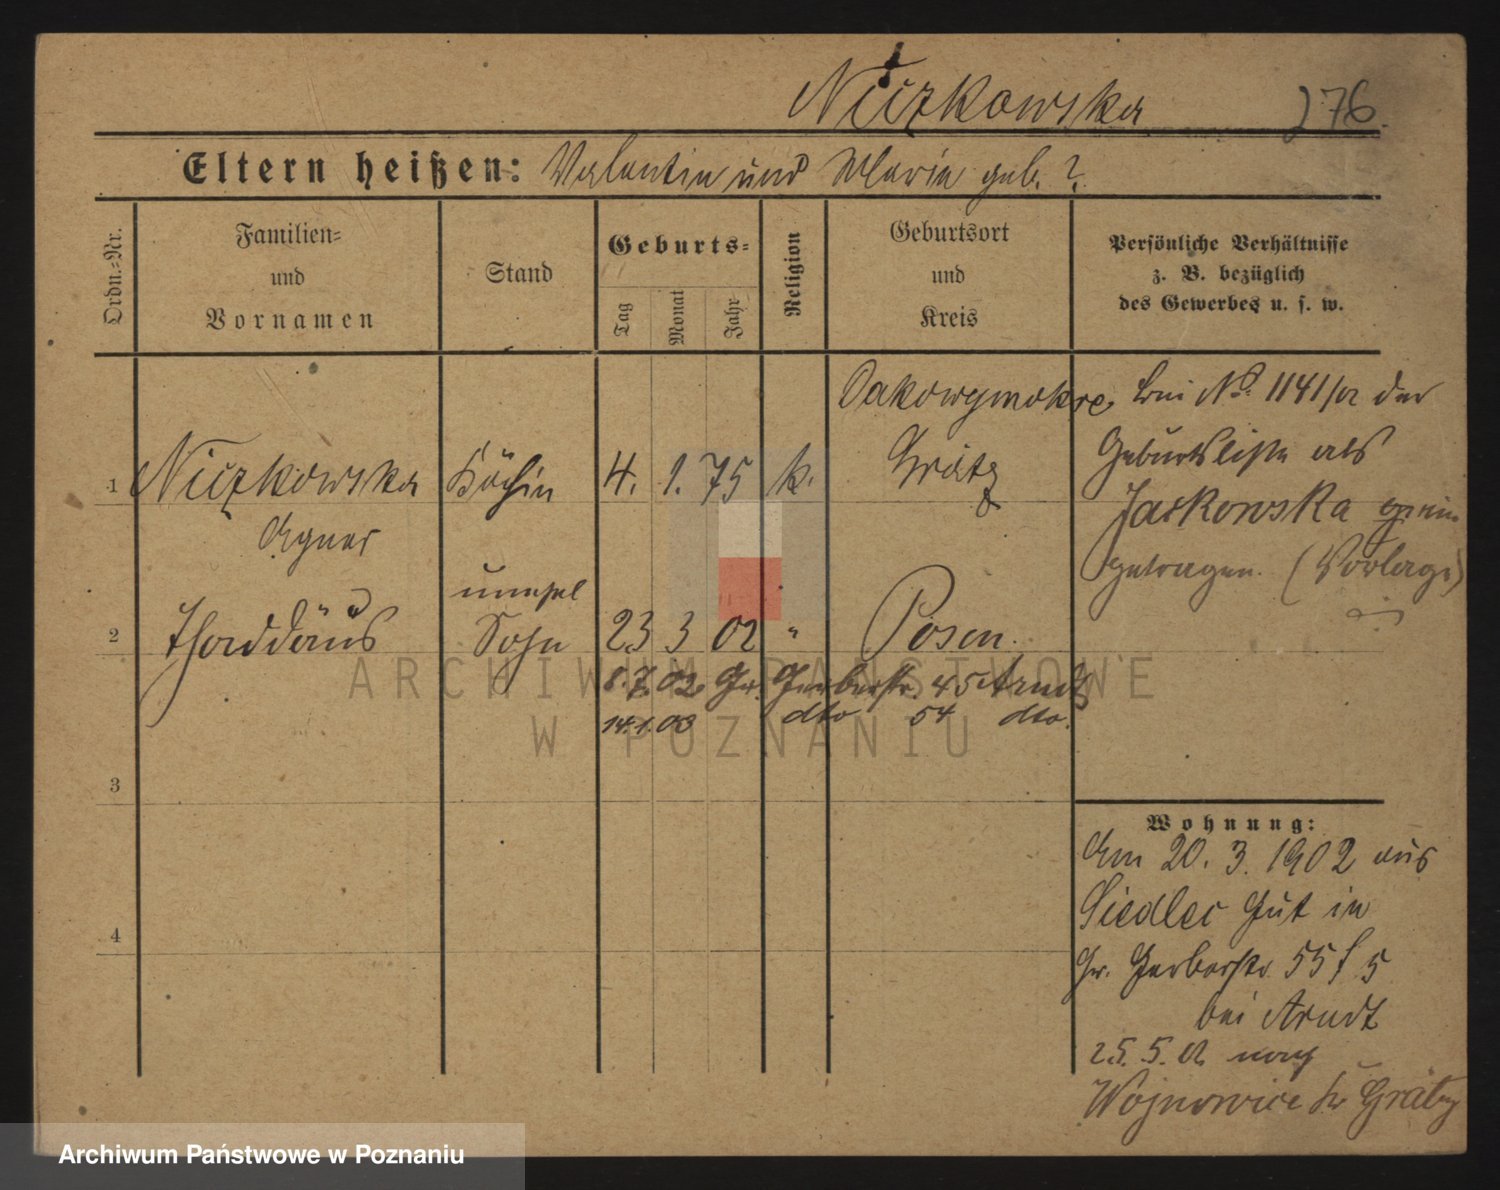 Niczkowska 276.
Eltern heißen: Valentin und Maria geb. ?.
Ordn.-Nr.
Familien-
und
Vornamen
Stand
Geburts-
Tag
Monat
Jahr
Religion
Geburtsort
und
Kreis
Persönliche Verhältnisse
z. B. bezüglich
des Gewerbes u. s. w.
1 Niczkowska Köchin 4. 1. 75 k.
Agnes
Dakowymokre
Grätz
bei No. 1141/02 der
Geburtsliste als
Jaskowska
getragen. (Vorlage)
unehel
2 Thaddäus Sohn 23 3 02 " Posen.
8.7.02 Gr. Gerberstr. 45 Arndt
14.1.03 dto 54 dto.
3
4
Wohnung:
Am 20. 3. 1902 aus
Siedlec Gut in
Gr. Gerberstr. 55 f 5
bei Arndt
25. 5. 02 nach
Wojnowice Kr Grätz
ARCHIWUM PAŃSTWOWE
W POZNANIU
Archiwum Państwowe w Poznaniu